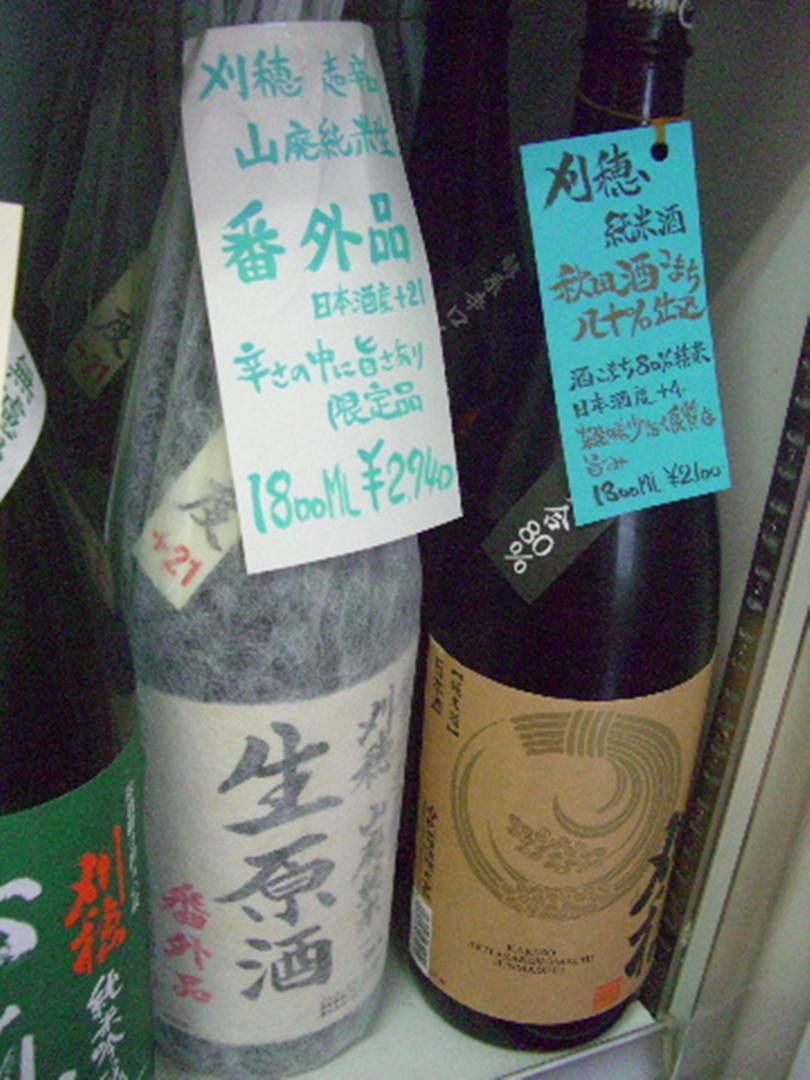 刈穂 超辛口
山廃純米生
番外品
日本酒度+21
辛さの中に旨さあり
限定品
1800ML ¥2,940
刈穂
純米酒
秋田酒こまち
八十%仕込
酒こまち80%精米
日本酒度+4
旨み
1800ML ¥2100
度
+21
度
+21
80%
無濾過
刈穂
純米吟醸
刈穂 山廃純米
生原酒
番外品
KARIHO
刈穂